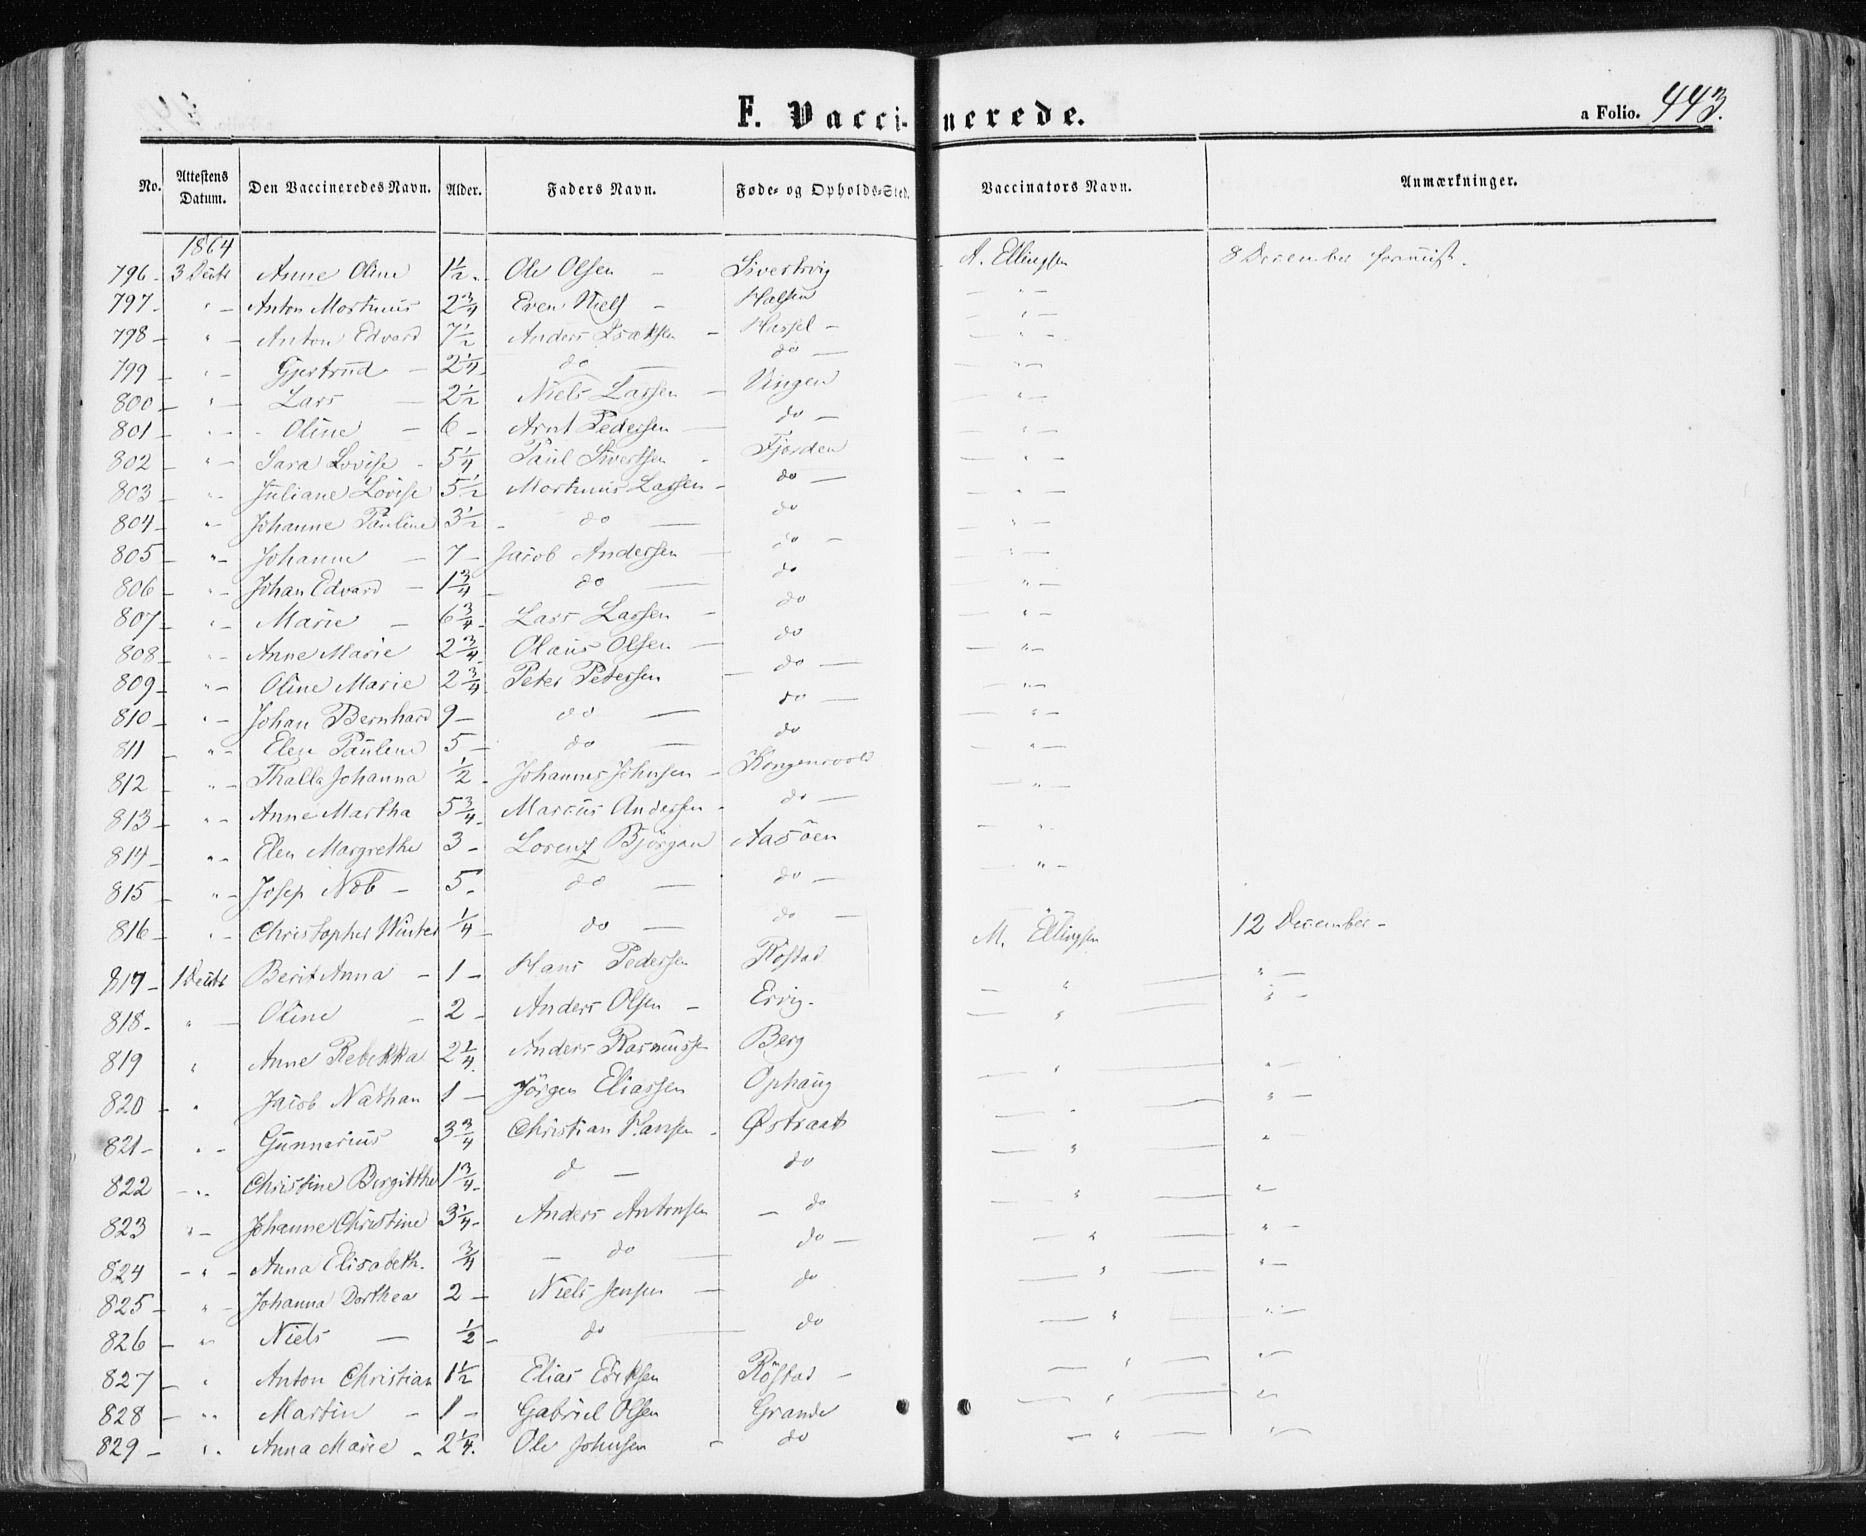 F. Vaccinerede.
a Folio. 443.
No. Attestens Datum. Den Vaccineredes Navn. Alder. Faders Navn. Føde- og Opholds-Sted. Vaccinators Navn. Anmærkninger.
1864
796 - 3 Anne Oline 1½ - Ole Olsen - A. Ellingsen 8 December
797 - " - Anton Mortinus 2¾ Even Niels - Halsen - " -
798 " - Anton Edvard 7½ Anders Isaksen - Hassel - - " -
799 - " - Gjertrud - 2¼ do - do - - " -
800 - " - Lars - 2½ Niels Larsen - Vingen - " -
801 - " - Oline - 6 - Arnt Pedersen - do - - " -
802 - " - Sara Lovise - 5¼ Paul Sivertsen - Fjorden - " -
803 - " - Juliane Lovise 5½ Mortinus Larsen - do - - " -
804 - " - Johanne Pauline 3½ - do - do - " -
805 - " - Johanne - 7 - Jacob Andersen - do - - " -
806 - " - Johan Edvard - 1¾ - do - do - " -
807 - " - Marie - 6¾ - Lars Larsen - do - " -
808 - " - Anne Marie 2¾ Olaus Olsen - do - " -
809 - " - Oline Marie 2¾ Peter Petersen - do - - " -
810 - " - Johan Bernhard 9 - do - do - - " -
811 - " - Elen Pauline 5 - do - do - " -
812 - " - Thalla Johanna ½ - Johannes Johnsen - Kongensvold - " -
813 - " - Anne Martha 5¾ - Marcus Andersen - do - - " -
814 - " - Elen Margrethe 3 - Lorenz Bjørgan Aasøen - " -
815 - " - Josep Neb - 5 - do - do - - " -
816 - " - Christopher Winter ¼ - do - do - "
817 - 1 Berit Anna - 1 - Hans Pedersen Röstad M. Ellingsen 12 December -
818 - " - Oline - 2 - Anders Olsen - Ervig - - " - " -
819 " Anne Rebekka 2¼ Anders Rasmussen Berg - " - " -
820 - " Jacob Nathan 1 - Jörgen Eliassen Ophaug - " - " -
821 - " - Gunnarius 3¾ Christian Hansen - Østraat - " - " -
822 - " Christine Birgitthe 1¾ - d - do - " - " -
823 " - Johanne Christine 3¼ - Anders Antonsen - do - " - " -
824 - " - Anna Elisabeth. ¾ - do - do - - " - " -
825 - " - Johanna Dorthea 2 - Niels Jensen - do - " - " -
826 - " Niels - ½ - do - do - " - " -
827 - " Anton Christian 1½ Elias Eriksen Röstad - - " - " -
828 - " Martin - 1 - Gabriel Olsen Grande - " - " -
829 - " Anna Marie - 2¼. Ole Johnsen - do - " - " -